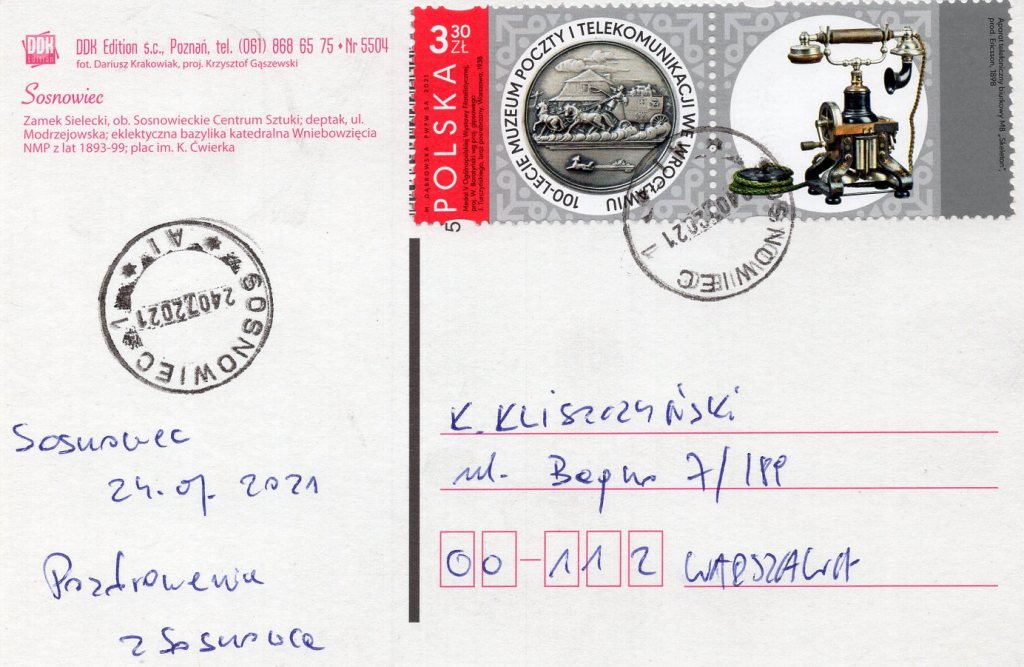 DDK EDITION
DDK Edition s.c., Poznań, tel. (061) 868 65 75 • Nr 5504
fot. Dariusz Krakowiak, proj. Krzysztof Gąszewski
Sosnowiec
Zamek Sielecki, ob. Sosnowieckie Centrum Sztuki; deptak, ul.
Modrzejowska; eklektyczna bazylika katedralna Wniebowzięcia
NMP z lat 1893-99; plac im. K. Ćwierka
3 30 ZŁ
POLSKA
M. DĄBROWSKA PWPW SA 2021
Medal V Ogólnopolskiej Wystawy Filatelistycznej,
100-LECIE MUZEUM POCZTY I TELEKOMUNIKACJI WE WROCŁAWIU
Aparat telefoniczny biurkowy MB „Skeleton”,
prod. Ericsson, 1898
5
SOSNOWIEC 1
24072021
SOSNOWIEC 1
2021
Sosnowiec
24.07. 2021
Pozdrowienia
z Sosnowca
K. KLISZCZYŃSKI
ul. Bagno 7/199
00-112 WARSZAWA